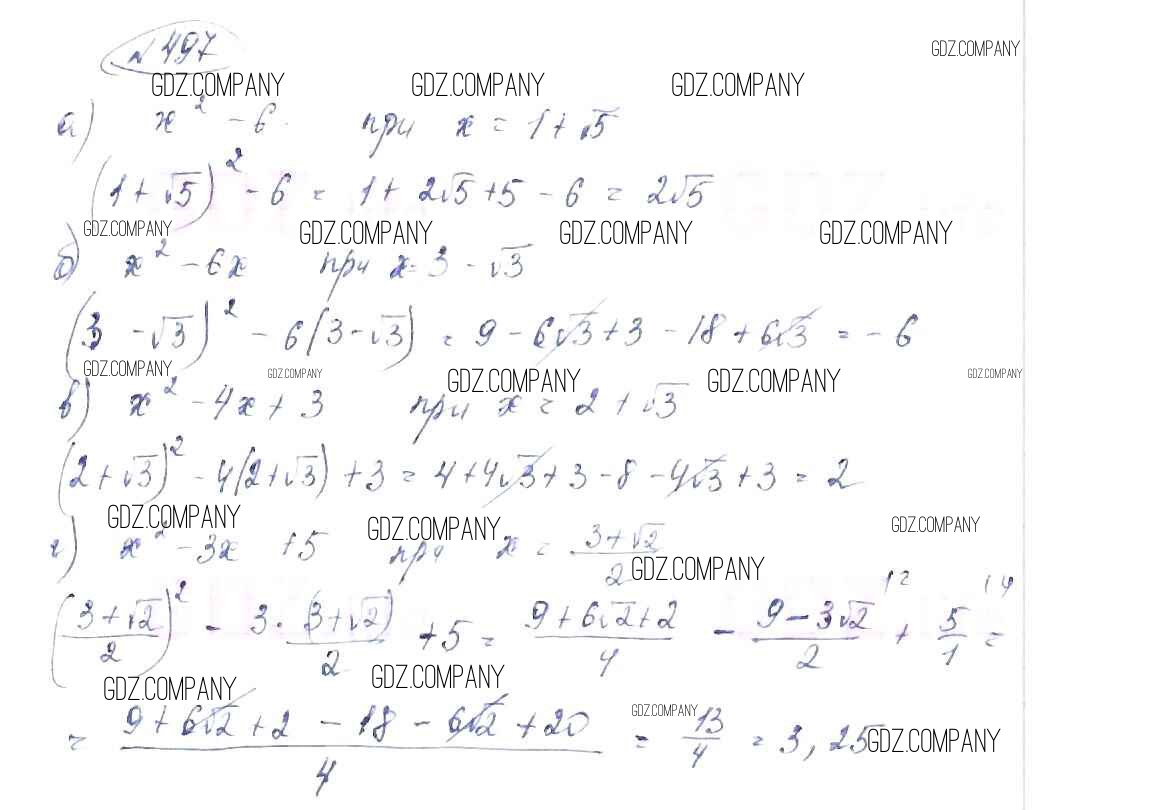 № 497
GDZ.COMPANY
GDZ.COMPANY GDZ.COMPANY GDZ.COMPANY
а) x² - 6 при x = 1 + √5
(1 + √5)² - 6 = 1 + 2√5 + 5 - 6 = 2√5
GDZ.COMPANY GDZ.COMPANY GDZ.COMPANY GDZ.COMPANY
б) x² - 6x при x = 3 - √3
(3 - √3)² - 6(3 - √3) = 9 - 6√3 + 3 - 18 + 6√3 = - 6
GDZ.COMPANY GDZ.COMPANY GDZ.COMPANY GDZ.COMPANY GDZ.COMPANY
в) x² - 4x + 3 при x = 2 + √3
(2 + √3)² - 4(2 + √3) + 3 = 4 + 4√3 + 3 - 8 - 4√3 + 3 = 2
GDZ.COMPANY GDZ.COMPANY GDZ.COMPANY
г) x² - 3x + 5 при x = (3 + √2)/2
GDZ.COMPANY
((3 + √2)/2)² - 3 · (3 + √2)/2 + 5 = (9 + 6√2 + 2)/4 - (9 - 3√2)/2 |2 + 5/1 |4 =
GDZ.COMPANY GDZ.COMPANY
= (9 + 6√2 + 2 - 18 - 6√2 + 20)/4 = 13/4 = 3,25
GDZ.COMPANY GDZ.COMPANY